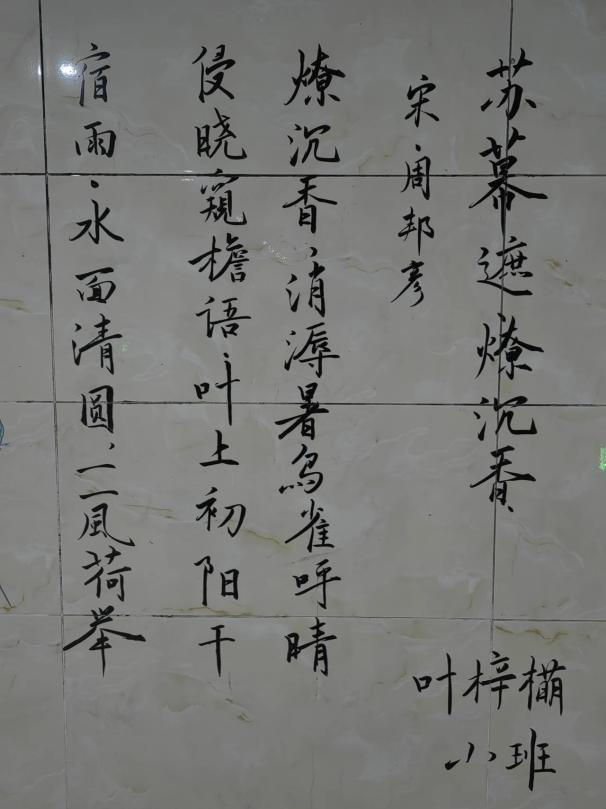 苏幕遮燎沉香
宋、周邦彦
燎沉香、消溽暑鸟雀呼晴
侵晓窺檐语、叶上初阳干
宿雨、水面清圆、一一風荷举
叶梓
小班